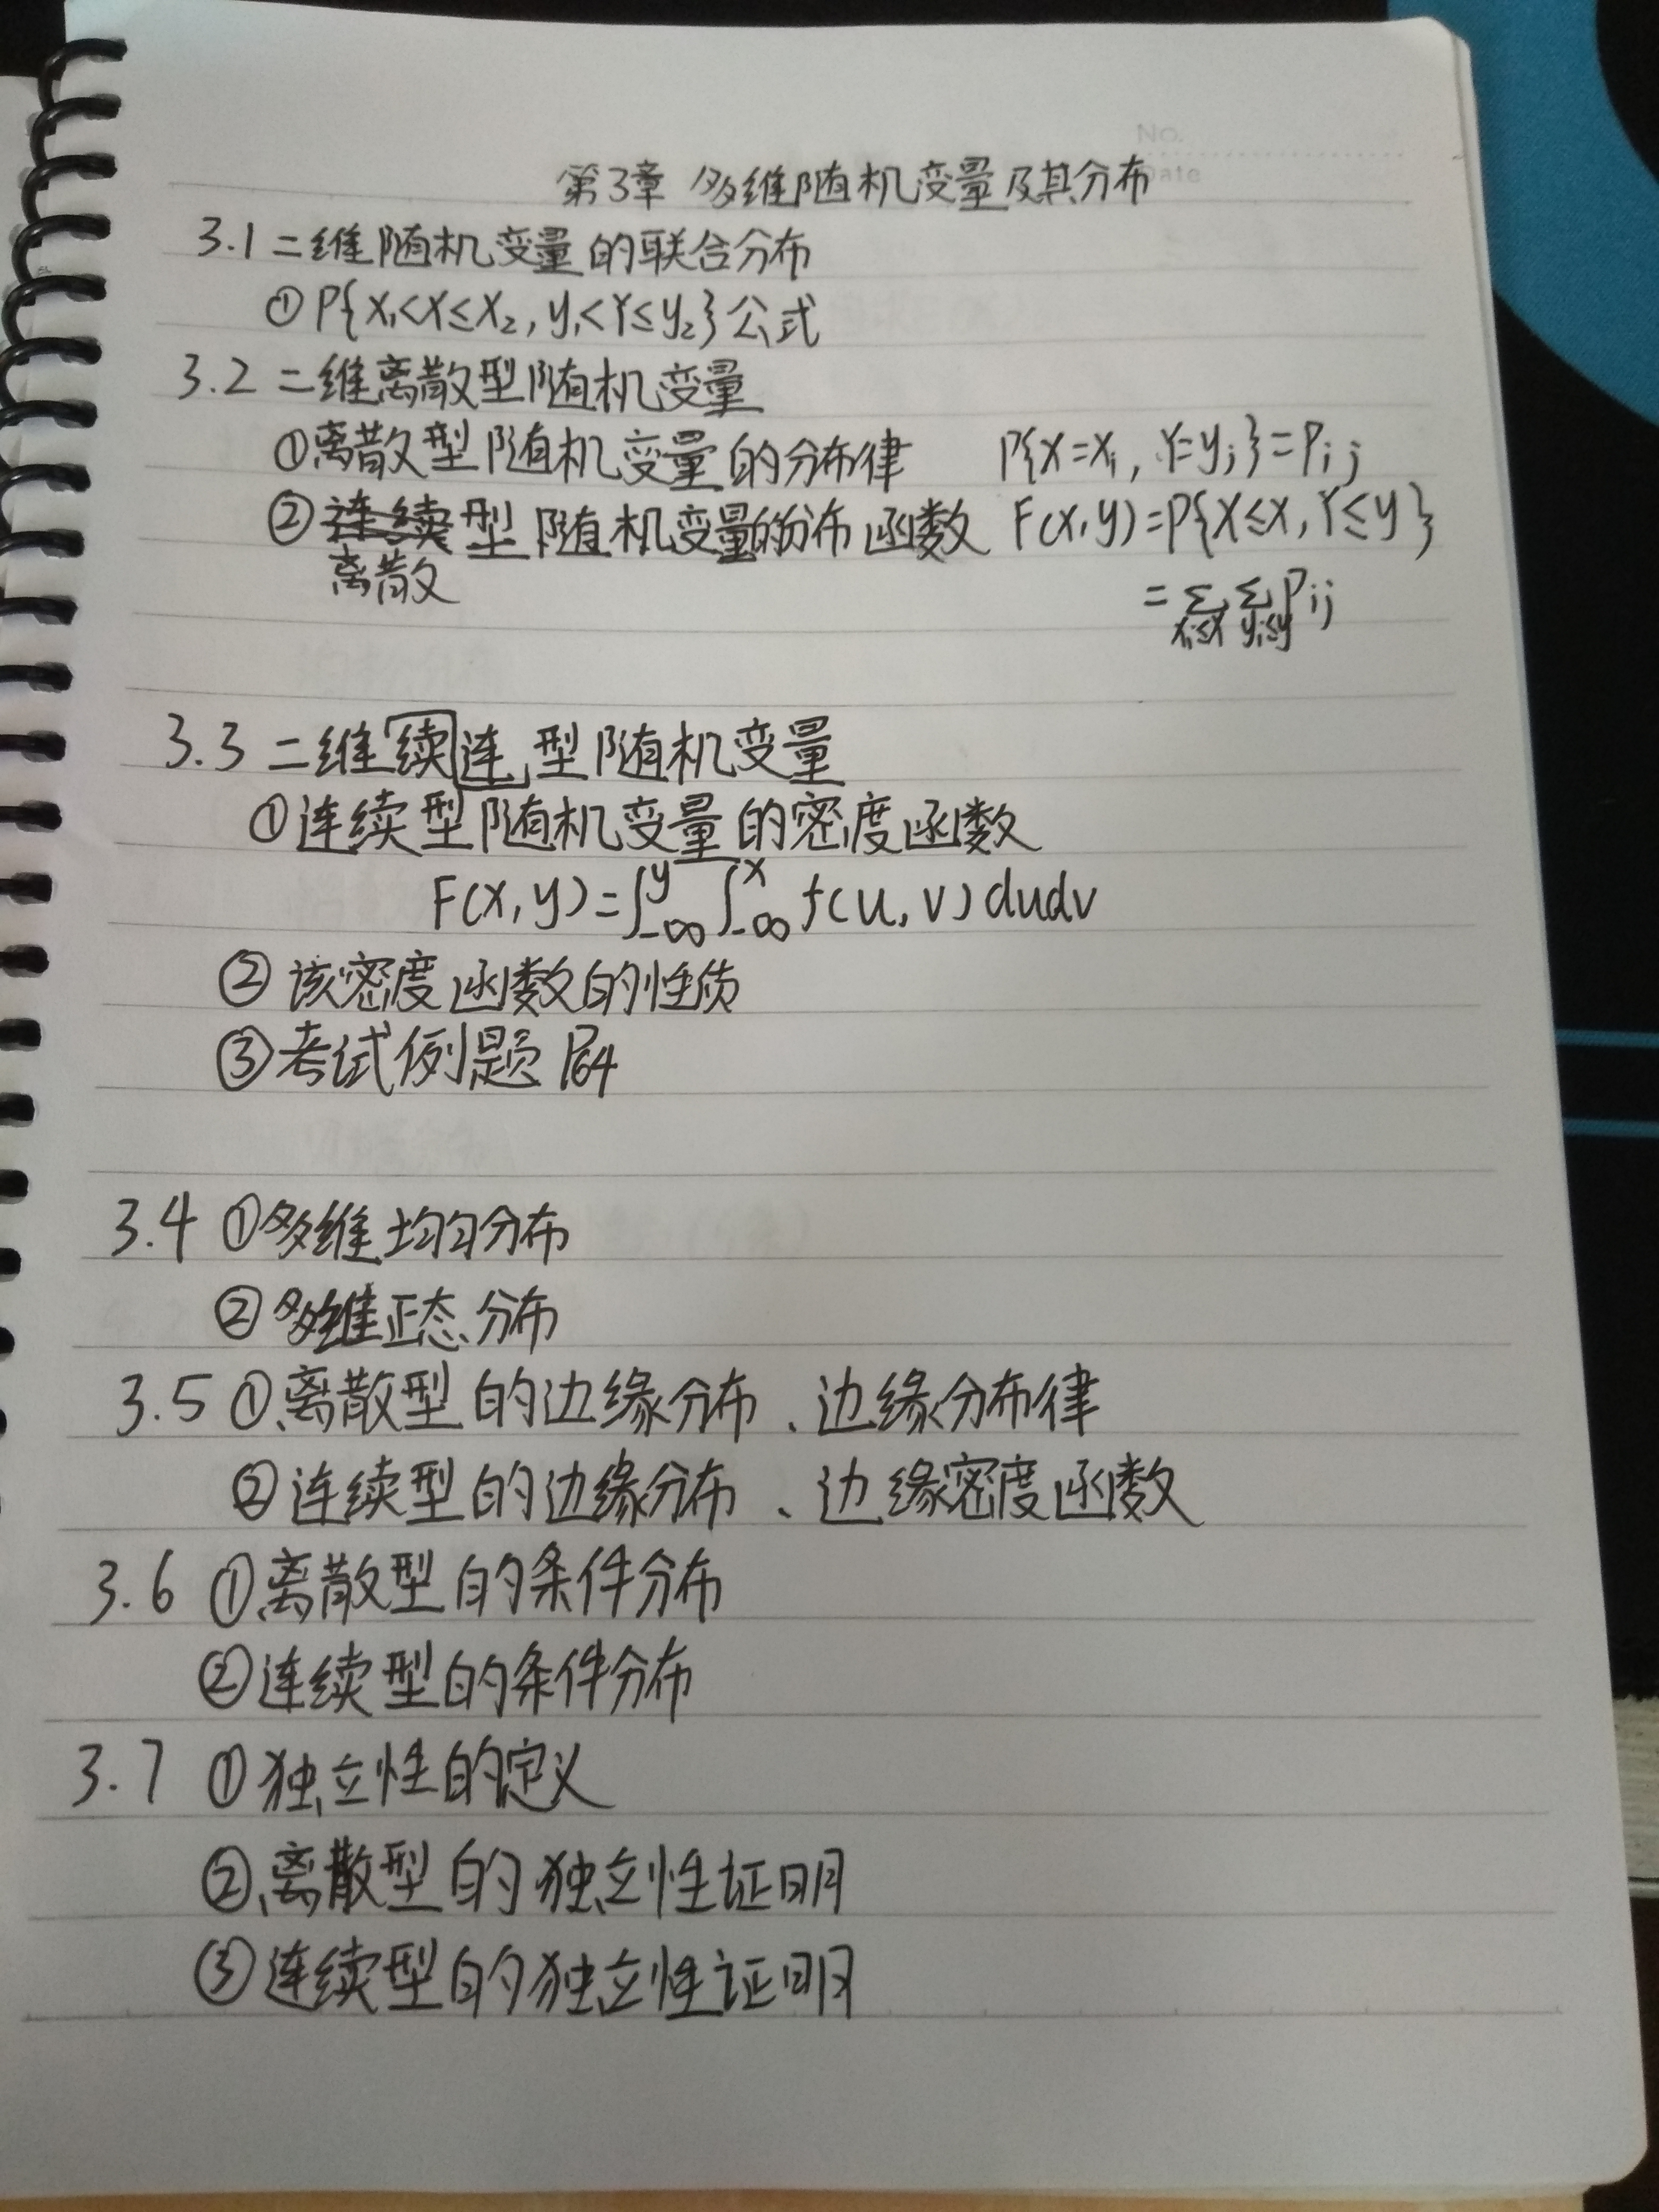 No.
Date
第3章 多维随机变量及其分布
3.1 二维随机变量的联合分布
① P{x₁<X≤x₂, y₁<Y≤y₂}公式
3.2 二维离散型随机变量
①离散型随机变量的分布律 P{X=xᵢ, Y=yⱼ}=Pᵢⱼ
②连续型随机变量的分布函数 F(x,y)=P{X≤x, Y≤y}
离散 =∑xᵢ≤x ∑yⱼ≤y Pij
3.3 二维续连型随机变量
①连续型随机变量的密度函数
F(x,y)=∫_{-∞}^{y}∫_{-∞}^{x} f(u,v)dudv
②该密度函数的性质
③考试例题 P64
3.4 ①多维均匀分布
②多维正态分布
3.5 ①离散型的边缘分布、边缘分布律
②连续型的边缘分布、边缘密度函数
3.6 ①离散型的条件分布
②连续型的条件分布
3.7 ①独立性的定义
②离散型的独立性证明
③连续型的独立性证明